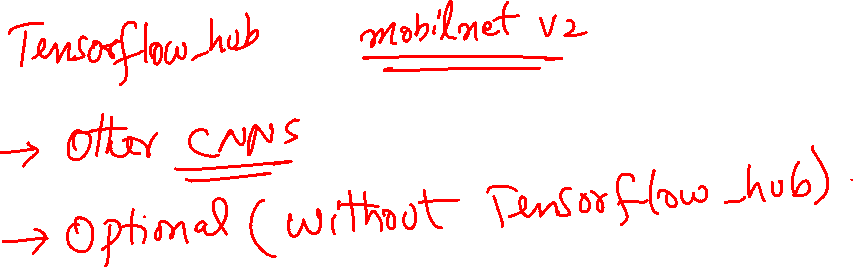 Tensorflow_hub mobilnet v2
→ Other CNNS
→ Optional (without Tensorflow_hub)